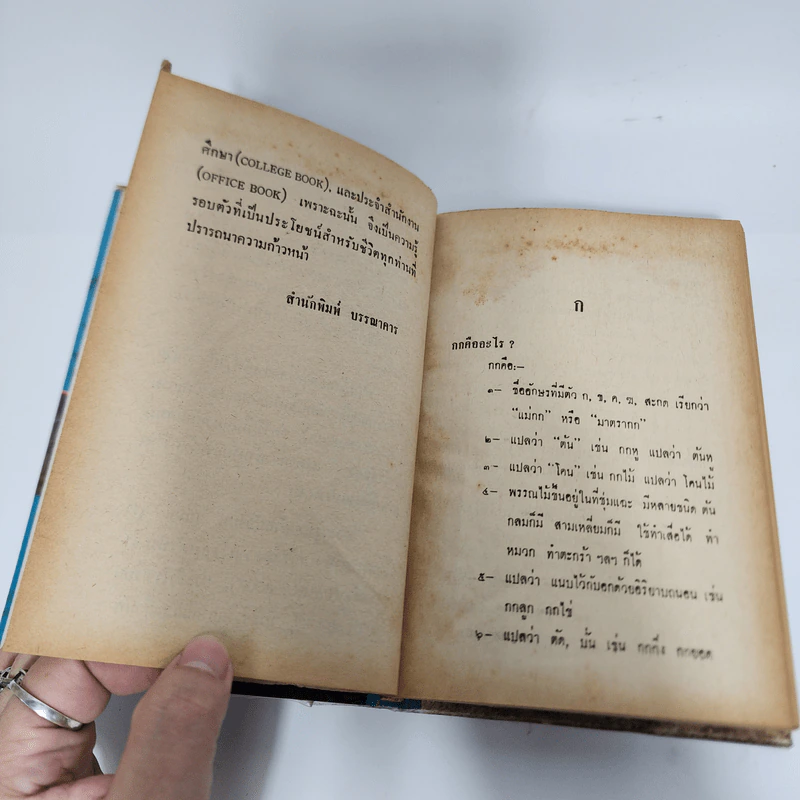 ศึกษา (COLLEGE BOOK), และประจำสำนักงาน
(OFFICE BOOK) เพราะฉะนั้น จึงเป็นความรู้
รอบตัวที่เป็นประโยชน์สำหรับชีวิตทุกท่านที่
ปรารถนาความก้าวหน้า
สำนักพิมพ์ บรรณาคาร
ก
กกคืออะไร ?
กกคือ:—
๑— ชื่ออักษรที่มีตัว ก, ข, ค, ฆ, สะกด เรียกว่า
"แม่กก" หรือ "มาตรากก"
๒— แปลว่า "ต้น" เช่น กกหู แปลว่า ต้นหู
๓— แปลว่า "โคน" เช่น กกไม้ แปลว่า โคนไม้
๔— พรรณไม้ขึ้นอยู่ในที่ชุ่มแฉะ มีหลายชนิด ต้น
กลมก็มี สามเหลี่ยมก็มี ใช้ทำเสื่อได้ ทำ
หมวก ทำตะกร้า ฯลฯ ก็ได้
๕— แปลว่า แนบไว้กับอกด้วยอิริยาบถนอน เช่น
กกลูก กกไข่
๖— แปลว่า ตัด, บั้น เช่น กกกิ่ง กกยอด